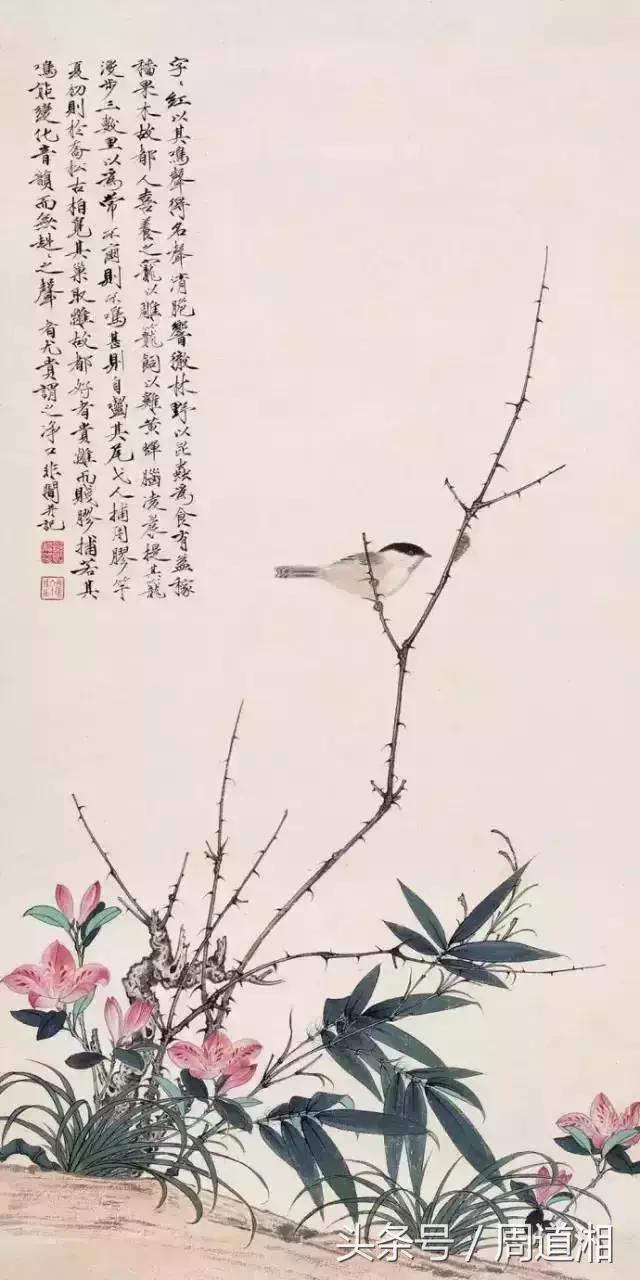 字〻紅以其鳴聲得名聲清脆響徹林野以昆蟲為食有益稼
穡果木故都人喜養之籠以雕籠飼以雞黃蟬腦凌晨提其籠
漫步三數里以為常不爾則不鳴甚則自齧其尾弋人捕用膠竿
夏初則於喬松古柏覓其巢取雛故都好者貴雛而賤膠捕若其
鳴能變化音韻而無赴〻之聲者尤貴謂之淨口非闇并記
头条号 / 周道湘